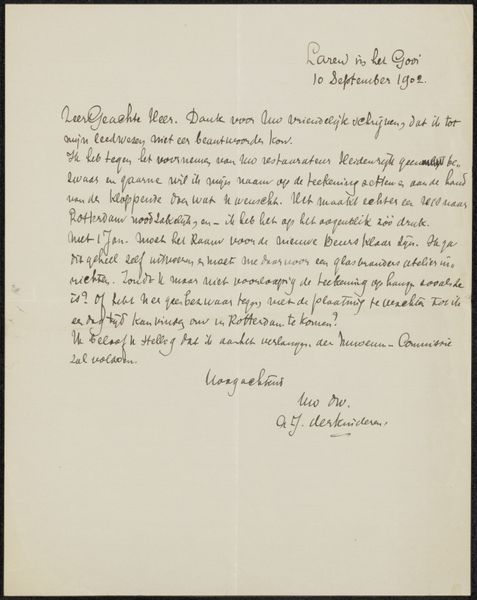 Laren in het Gooi
10 September 1902.
Zeer Geachte Heer. Dank voor Uw vriendelijk schrijven, dat ik tot
mijn leedwezen niet eer beantwoorden kon.
Ik heb tegen het voornemen van Uw restaurateur Heidenrijk be-
zwaar en gaarne wil ik mijn naam op de teekening zetten aan de hand
van de doen wat U wenscht. Het maakt echter een reis naar
Rotterdam noodzakelijk, en – ik heb het op het oogenblik zóó druk.
met 1 Jan. moet het Raam voor de nieuwe Beurs klaar zijn. Ik ga
dit geheel zelf uitvoeren en moet me daarvoor een glasbranders atelier in-
richten. Zoudt U maar niet voorloopig de teekening op hangen zooals ze
is? Of hebt U er geen bezwaar tegen met de plaatsing te wachten tot ik
een dag tijd kan vinden om in Rotterdam te komen?
Ik beloof U stellig dat ik aan het verlangen der Museum-Commissie
zal voldoen.
Hoogachtend
Uw dw.
A J. derkinderen.